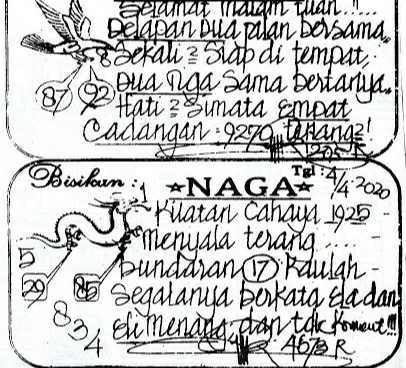 Selamat malam tuan....!!
Delapan Dua jalan bersama..
8 Sekali 2 Siap di tempat,
Dua Tiga Sama bertanya..
87 92
Hati 2 Simata Empat
Cadangan = 9270 terang2!
Bisikan : ★NAGA★ Tgl : 4/4-2020
1
Kilatan Cahaya 1925 -
Menyala terang .... -
bundaran 17 Kaulah -
5
29 85
Segalanya berkata Ela dan
834
Eli Menang, dan tak Koment!!!
4673 R